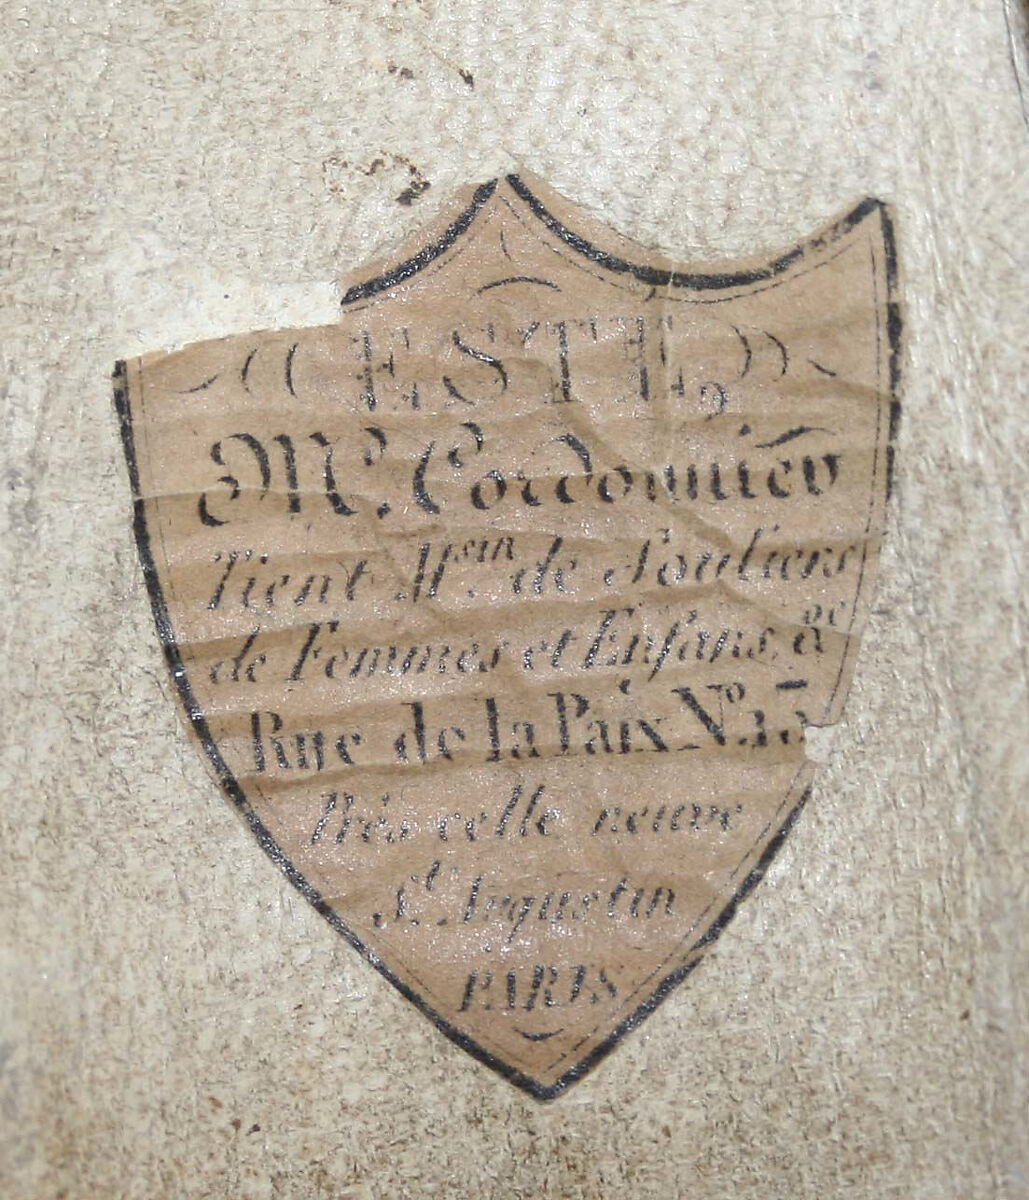 ESTE,
Md. Cordonnier
Tient Msin. de Souliers
de Femmes et Enfans, &c
Rue de la Paix No. 13
Près celle neuve
St. Augustin
PARIS